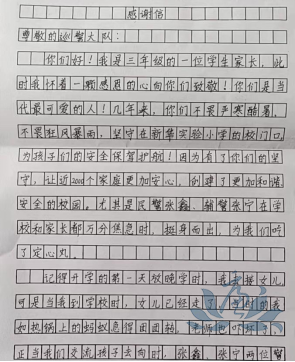 感谢信
尊敬的巡警大队：
你们好！我是三年级的一位学生家长，此
时我怀着一颗感恩的心向你们致敬！你们是当
代最可爱的人！几年来，你们不畏严寒酷暑，
不畏狂风暴雨，坚守在新华实验小学的校门口，
为孩子们的安全保驾护航！因为有了你们的坚
守，让近2000个家庭更加安心，创建了更加和谐
安全的校园。尤其是民警张鑫、辅警张宁在学
校和家长都万分焦急时，挺身而出，为我们吃
了定心丸。
记得开学的第一天放晚学时，我去接女儿
可是当我到学校时，女儿已经走了，当时的我
如热锅上的蚂蚁急得团团转，老师也吓坏了，
正当我们交流孩子去向时，张鑫、张宁两位警